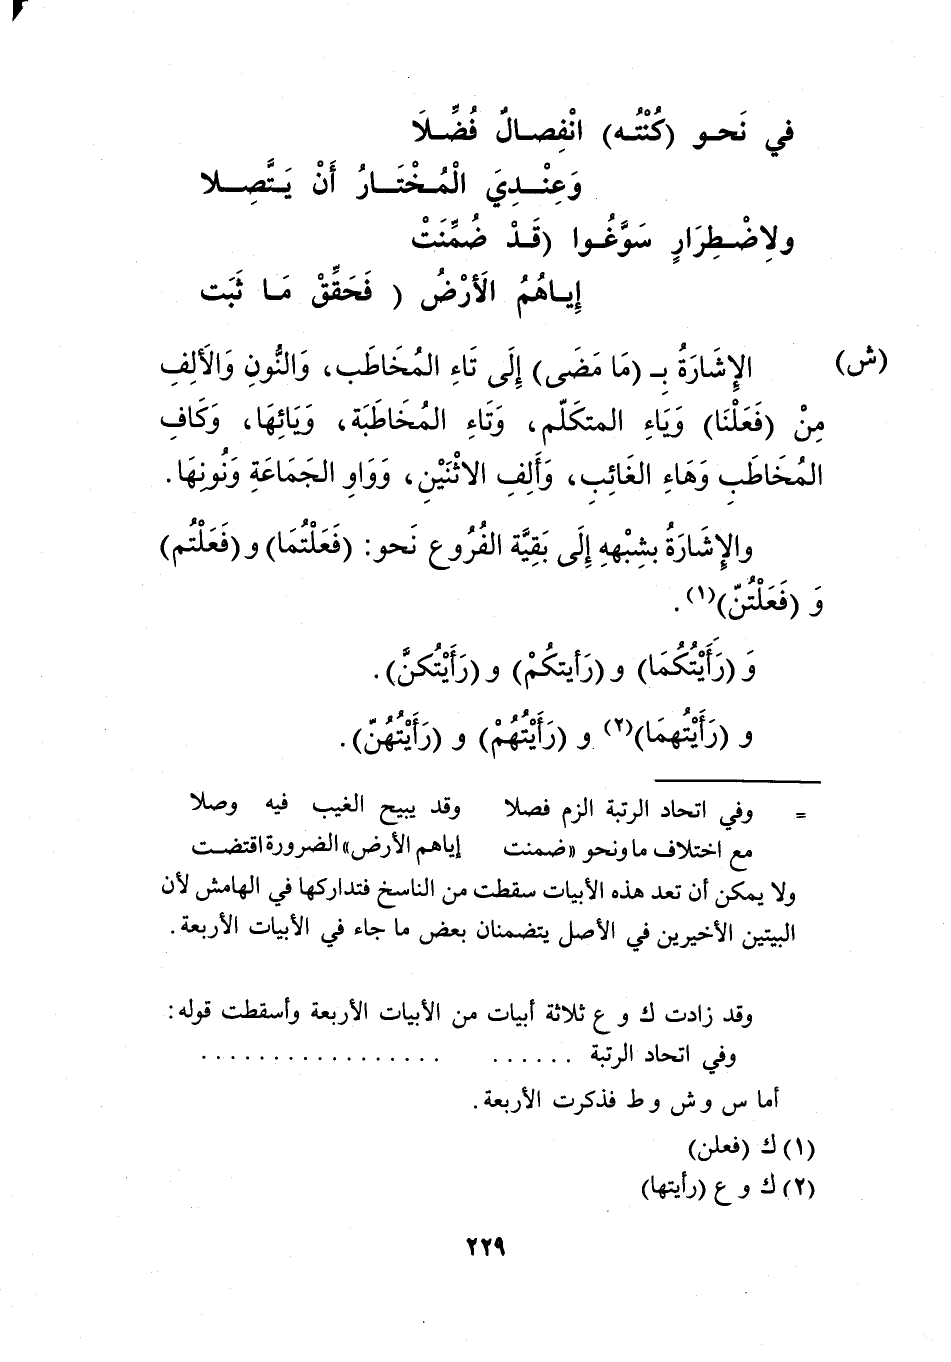 في نَحـو (كُنْتُـه) انْفِصـالٌ فُضِّـلَا
وَعِنْـدِيَ الْمُـخْتَـارُ أَنْ يَـتَّصِـلا
ولِاضْـطِرَارٍ سَوَّغُـوا (قَـدْ ضُمِّنَتْ
إيـاهُمُ الَأرْضُ ( فَحَقِّقْ مَـا ثَبَت
(ش) الإشَارَةُ بِـ (مَا مَضَى) إلَى تَاءِ المُخَاطَب، وَالنُّونِ وَالَألِفِ
مِنْ (فَعَلْنَا) وَيَاءِ المتكَلّم، وَتَاءِ المُخَاطَبَة، وَيَائِهَا، وَكَافِ
المُخَاطَبِ وَهَاءِ الغَائِبِ، وَأَلِفِ الاثْنَيْنِ، وَوَاوِ الجَمَاعَةِ وَنُونِهَا.
والإشَارَةُ بشِبْههِ إلَى بَقِيَّة الفُرُوع نَحو: (فَعَلْتُمَا) و (فَعَلْتُم)
وَ (فَعَلْتُنّ)(١).
وَ (رَأَيْتُكُمَا) و (رَأيتكُمْ) و (رَأَيْتُكنَّ).
و (رَأَيْتُهمَا)(٢) و (رَأَيْتُهُمْ) و (رَأَيْتُهُنّ).
= وفي اتحاد الرتبة الزم فصلا وقد يبيح الغيب فيه وصلا
مع اختلاف ما ونحو «ضمنت إياهم الأرض» الضرورة اقتضـت
ولا يمكن أن تعد هذه الأبيات سقطت من الناسخ فتداركها في الهامش لأن
البيتين الأخيرين في الأصل يتضمنان بعض ما جاء في الأبيات الأربعة.
وقد زادت ك و ع ثلاثة أبيات من الأبيات الأربعة وأسقطت قوله:
وفي اتحاد الرتبة ...... .................
أما س و ش و ط فذكرت الأربعة.
(١) ك (فعلن)
(٢) ك و ع (رأيتها)
٢٢٩